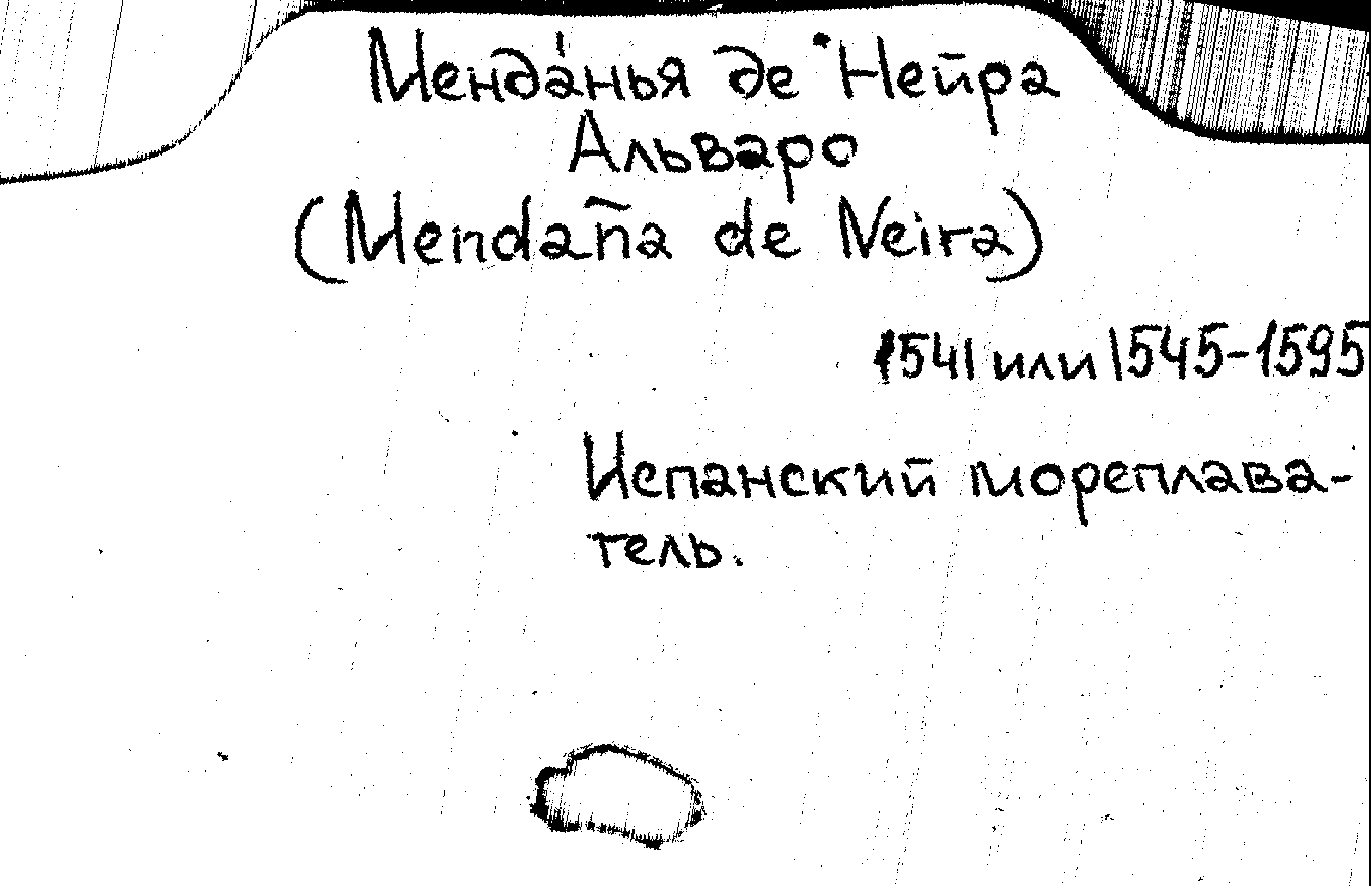 Менда́нья де Нейра
Альваро
(Mendaña de Neira)
1541 или 1545-1595
Испанский мореплава-
тель.